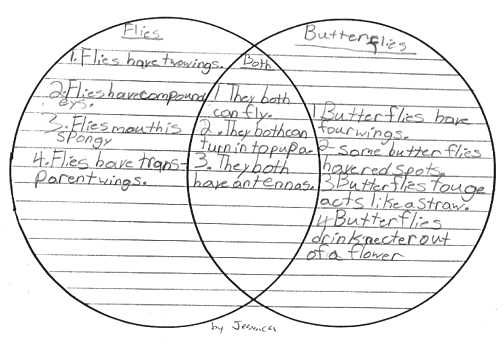 Flies
1. Flies have two wings.
2. Flies have compound
eys.
3. Flies mouth is
spongy
4. Flies have trans-
parent wings.
Both
1 They both
can fly.
2. They both can
turn in to pupae.
3. They both
have antennas.
Butterflies
1 Butterflies have
four wings.
2 some butterflies
have red spots.
3 Butterflies touge
acts like a straw.
4 Butterflies
drink necter out
of a flower
by Jessica